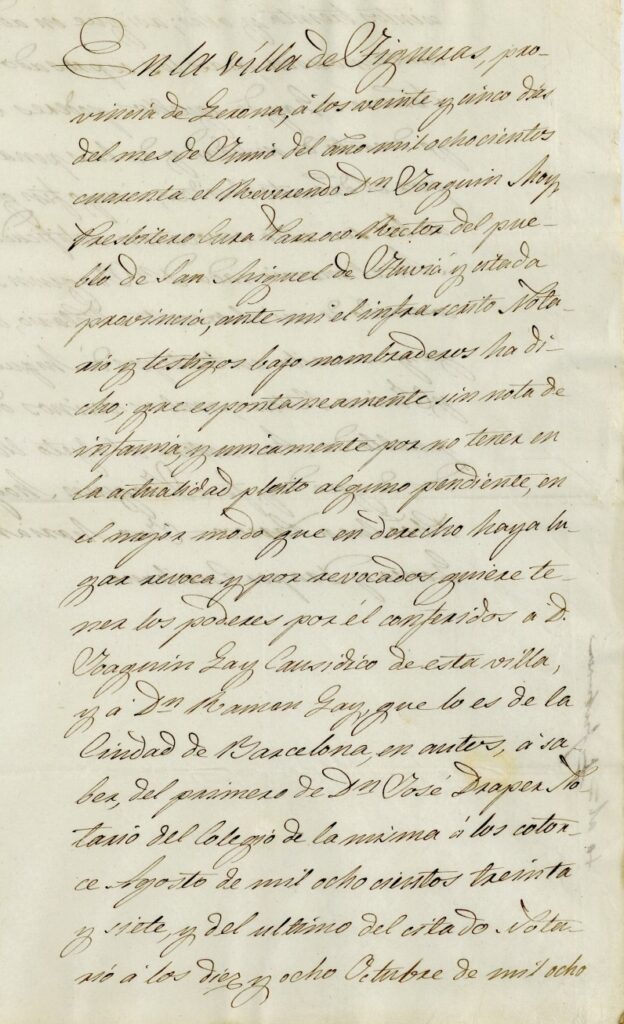 En la villa de Figueras, pro-
vincia de Gerona, á los veinte y cinco dias
del mes de Junio del año mil ochocientos
cuarenta el Reverendo Dn Joaquin Moy
Presbitero Cura Parroco Rector del pue-
blo de San Miguel de Fluviá y citada
provincia, ante mi el infrascrito Nota-
rio y testigos bajo nombraderos ha di-
cho; que espontaneamente sin nota de
infamia, y unicamente por no tener en
la actualidad pleito alguno pendiente, en
el mejor modo que en derecho haya lu-
gar revoca y por revocados quiere te-
ner los poderes por él conferidos a D.
Joaquin Gay Causidico de esta villa,
y á Dn Ramon Gay, que lo es de la
Ciudad de Barcelona, en autos, á sa
ber, del primero de Dn José Draper No
tario del Colegio de la misma á los cator-
ce Agosto de mil ochocientos treinta
y siete, y del ultimo del citado Nota-
rio á los diez y ocho Octubre de mil ocho